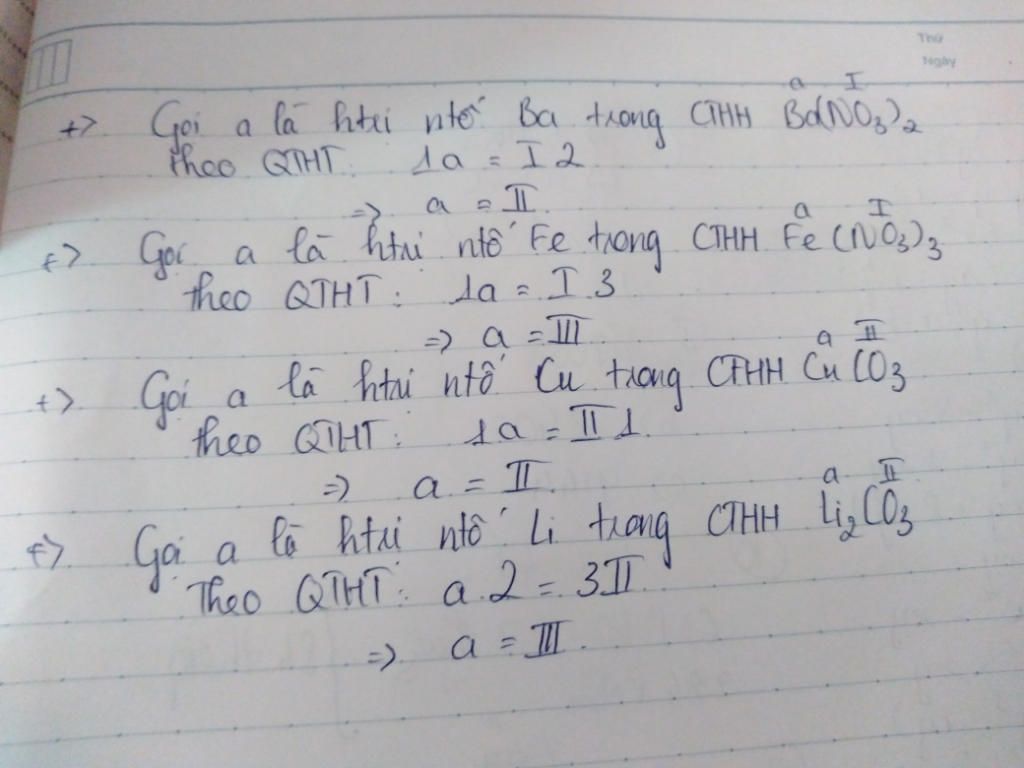 Thứ
Ngày
+> Gọi a là htrị ntố Ba trong CTHH Ba(NO3)2
a I
theo QTHT: 1a = I 2
=> a = II.
+> Gọi a là htrị ntố Fe trong CTHH Fe(NO3)3
a I
theo QTHT: 1a = I.3
=> a = III
+> Gọi a là htrị ntố Cu trong CTHH CuCO3
a II
theo QTHT: 1a = II 1.
=> a = II.
+> Gọi a là htrị ntố Li trong CTHH Li2CO3
a II
Theo QTHT: a.2 = 3II
=> a = III.